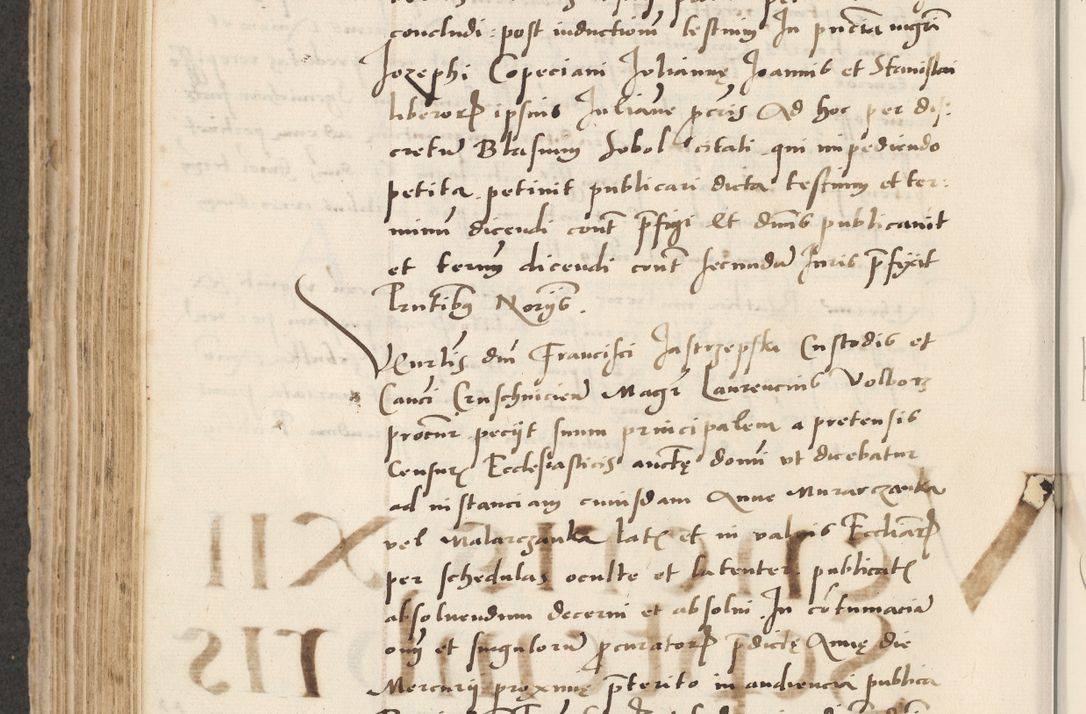 concludi: post inductionem testium In pncia magri
Jozephi Copeciani Julianne Joannis et Stanislai
liberorum ipsius Julianne pcris Ad hoc per dis:
cretum Blasium Sobol citati qui impediendo
petita petiuit publicari dicta testium et ter:
minum dicendi cont prefigi Et dnus publicauit
et termum dicendi cont secundum Juris prefixit
Prntibus Norijs.
Venrlis dni Francisci Jastrzepski Custodis et
Canci Cruschuicien Magr Laurencius Volborz
procur peciit suum principalem a pretensis
Censuris Ecclesiasticis aucte domi vt dicebatur
ad instanciam cuiusdam Anne Murarczanka
vel Malarczanka latis et in valuis Ecclarum
per schedulas oculte et latenter publicatis
absoluendum decerni et absolui In contumaciam
oim et singulorum procuratorum predicte Anne die
Mercurij proxime preterito in audiencia publica